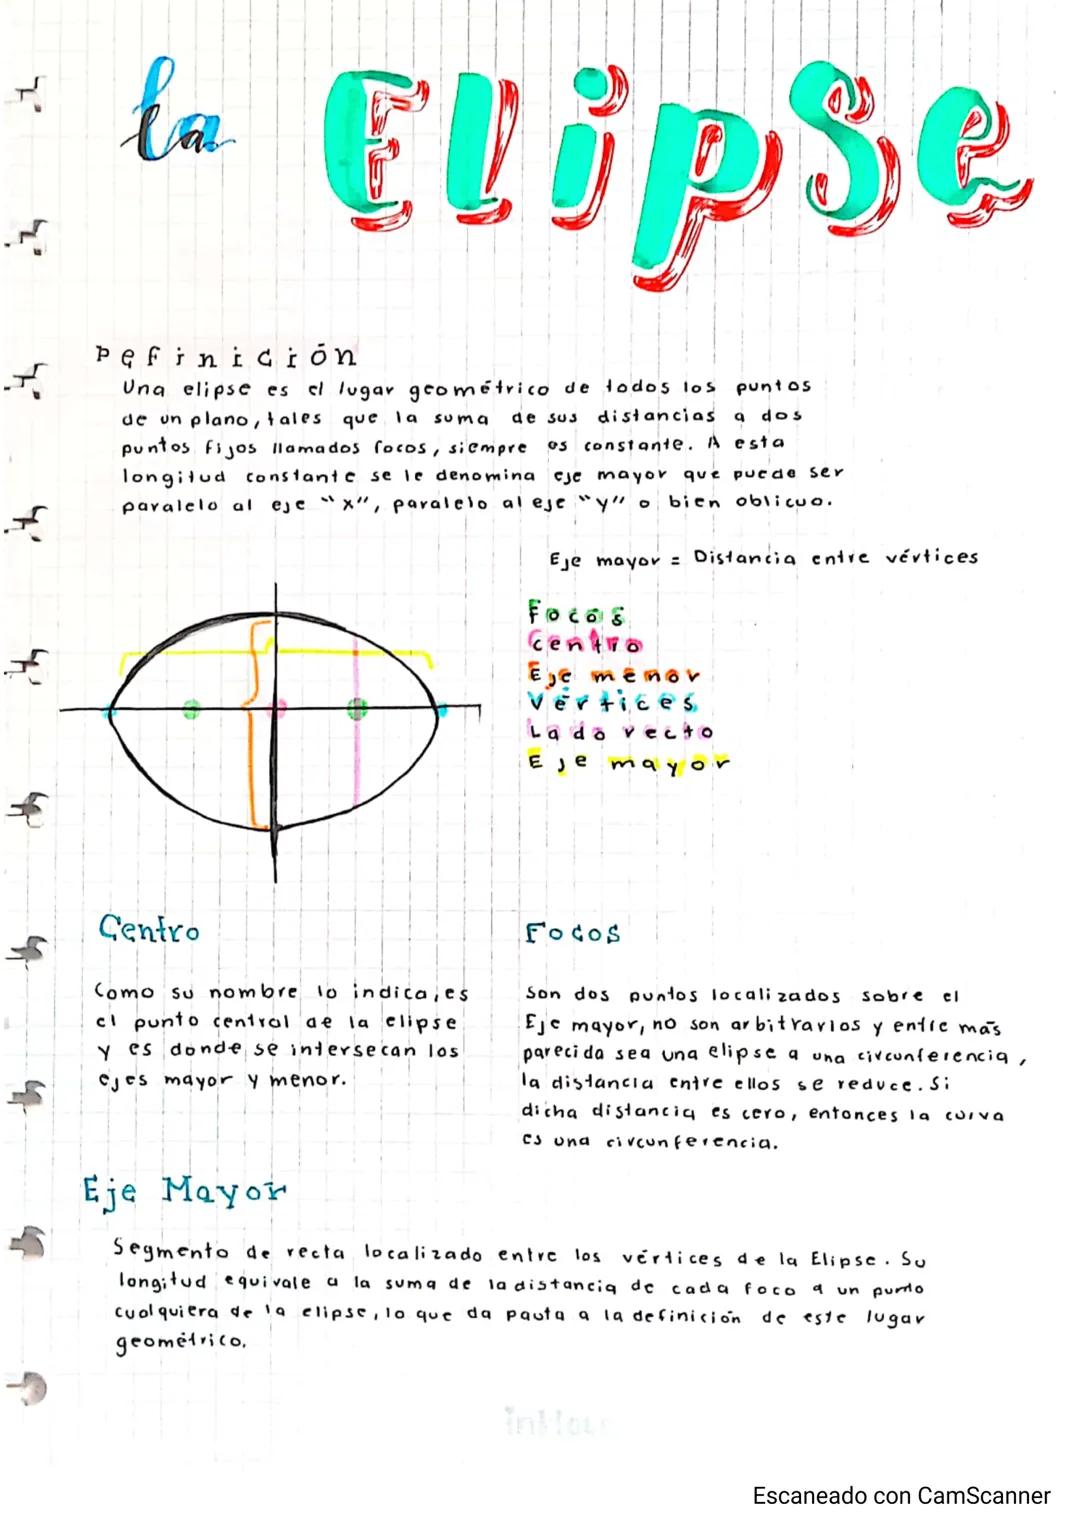 la Elipse
Definición
Una elipse es el lugar geométrico de todos los puntos
de un plano, tales que la suma de sus distancias a dos
puntos fijos llamados focos, siempre es constante. A esta
longitud constante se le denomina eje mayor que puede ser
paralelo al eje "x", paralelo al eje "y" o bien oblicuo.
Eje mayor = Distancia entre vértices
Focos
Centro
Eje menor
Vértices
Lado recto
Eje mayor
Centro
Como su nombre lo indica, es
el punto central de la elipse
y es donde se intersecan los
ejes mayor y menor.
Focos
Son dos puntos localizados sobre el
Eje mayor, no son arbitrarios y entre más
parecida sea una elipse a una circunferencia,
la distancia entre ellos se reduce. Si
dicha distancia es cero, entonces la curva
es una circunferencia.
Eje Mayor
Segmento de recta localizado entre los vértices de la Elipse. Su
longitud equivale a la suma de la distancia de cada foco a un punto
cualquiera de la elipse, lo que da pauta a la definición de este lugar
geométrico.
Escaneado con CamScanner